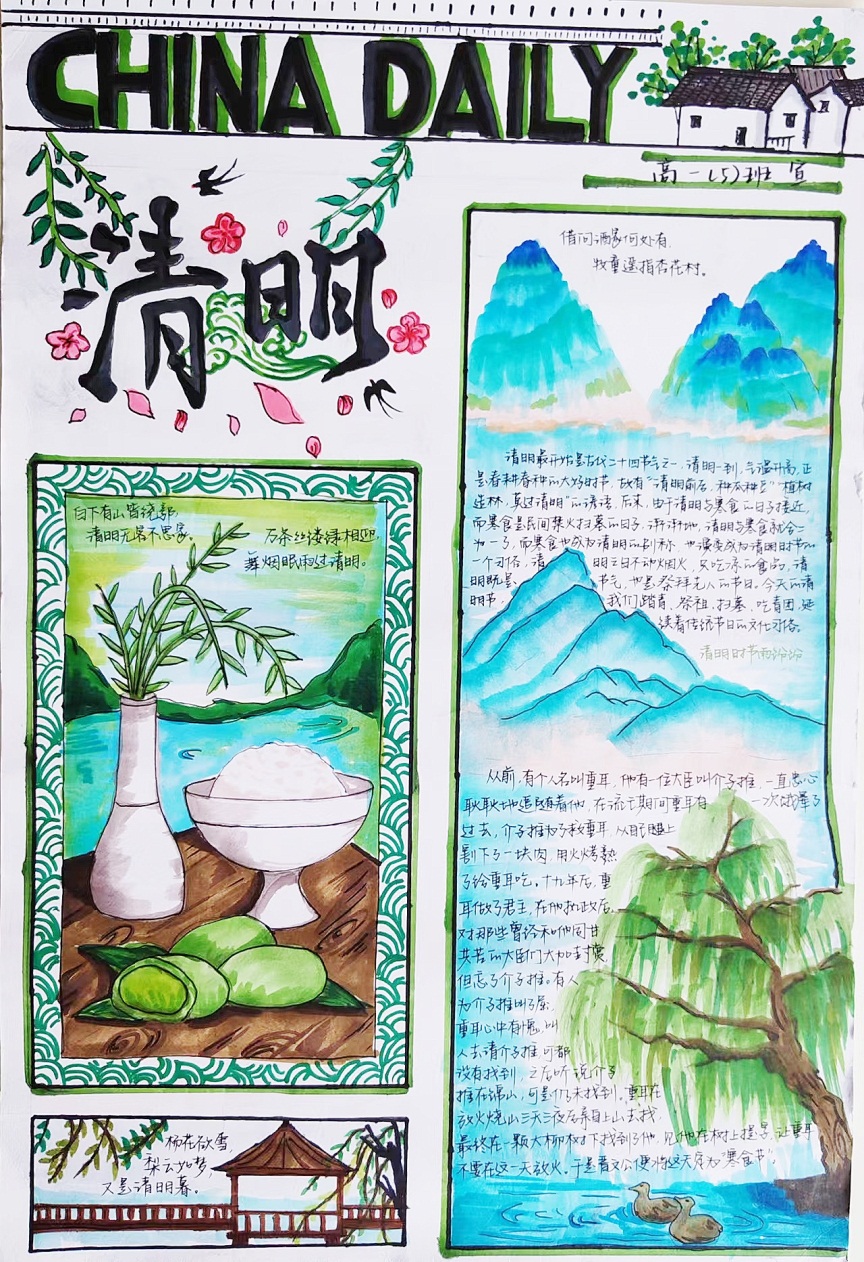 CHINA DAILY
高一(5)班 宣
清明
借问酒家何处有,
牧童遥指杏花村。
白下有山皆绕郭,
清明无客不思家。
万条丝缕绿相迎,
舞烟眠雨过清明。
清明最开始是古代二十四节气之一,清明一到,气温升高,正
是春耕春种的大好时节,故有"清明前后,种瓜种豆""植树
造林,莫过清明"的谚语。后来,由于清明与寒食的日子接近,
而寒食是民间禁火扫墓的日子,渐渐地,清明与寒食就合二
为一了,而寒食也成为清明的别称,也演变成为清明时节的
一个习俗,清明之日不动烟火,只吃凉的食品,清
明既是节气,也是祭拜先人的节日。今天的清
明节,我们踏青、祭祖、扫墓、吃青团,延
续着传统节日的文化习俗。
清明时节雨纷纷
从前,有个人名叫重耳,他有一位大臣叫介子推,一直忠心
耿耿地追随着他,在流亡期间重耳有一次饿晕了
过去,介子推为了救重耳,从自己腿上
割下了一块肉,用火烤熟
了给重耳吃。十九年后,重
耳做了君主,在他执政后,
对那些曾经和他同甘
共苦的大臣们大加封赏,
但忘了介子推。有人
为介子推叫屈,
重耳心中有愧,叫
人去请介子推,可都
没有找到,之后听说介子
推在绵山,可是仍未找到。重耳在
放火烧山三天三夜后亲自上山去找,
最终在一颗大柳树下找到了他,见他在树上提字,让重耳
不要在这一天放火。于是晋文公便将这天定为"寒食节"。
杨花欲雪,
梨云如梦,
又是清明暮。